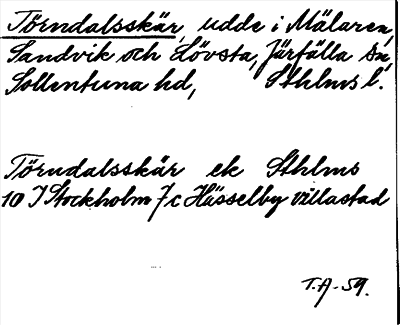 Törndalsskär, udde i Mälaren,
Sandvik och Lövsta, Järfälla sn,
Sollentuna hd, Sthlms l.
Törndalsskär ek Sthlms
10 I Stockholm 7c Hässelby villastad
T.A. 59.